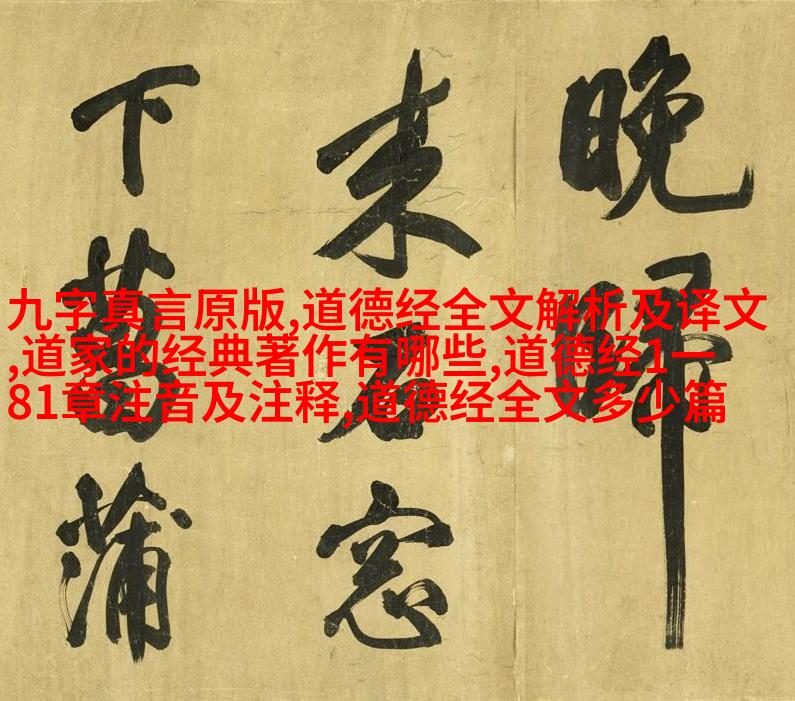 晚歸
窓
下菖蒲
九字真言原版,道德经全文解析及译文
,道家的经典著作有哪些,道德经1一
81章注音及注释,道德经全文多少篇